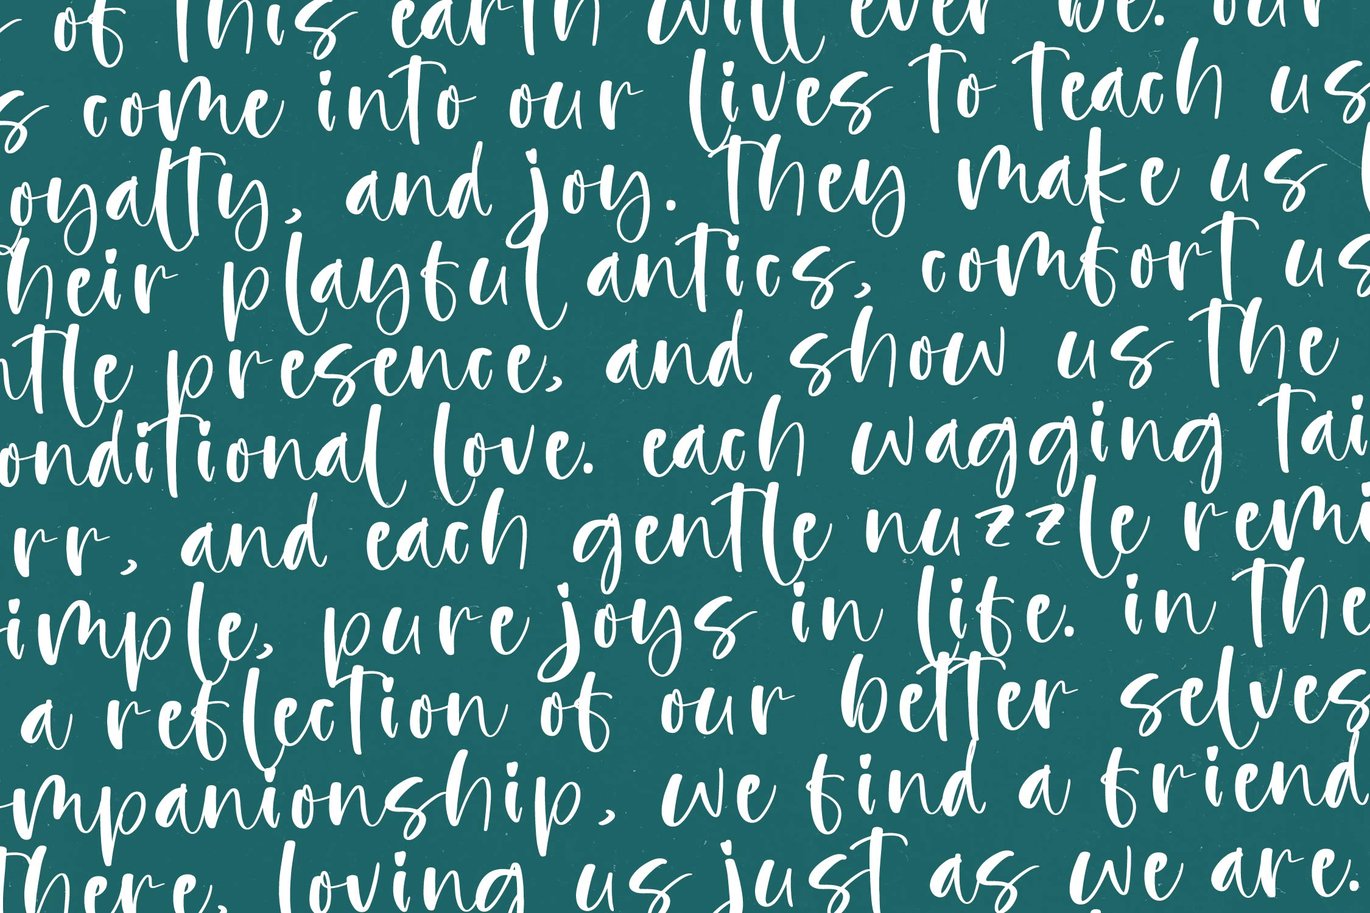 of this earth will ever be. our
s come into our lives to teach us
oyalty, and joy. they make us
their playful antics, comfort us
ntle presence, and show us the
onditional love. each wagging tai
rr, and each gentle nuzzle remi
imple, pure joys in life. in the
a reflection of our better selves
mpanionship, we find a friend
there, loving us just as we are.